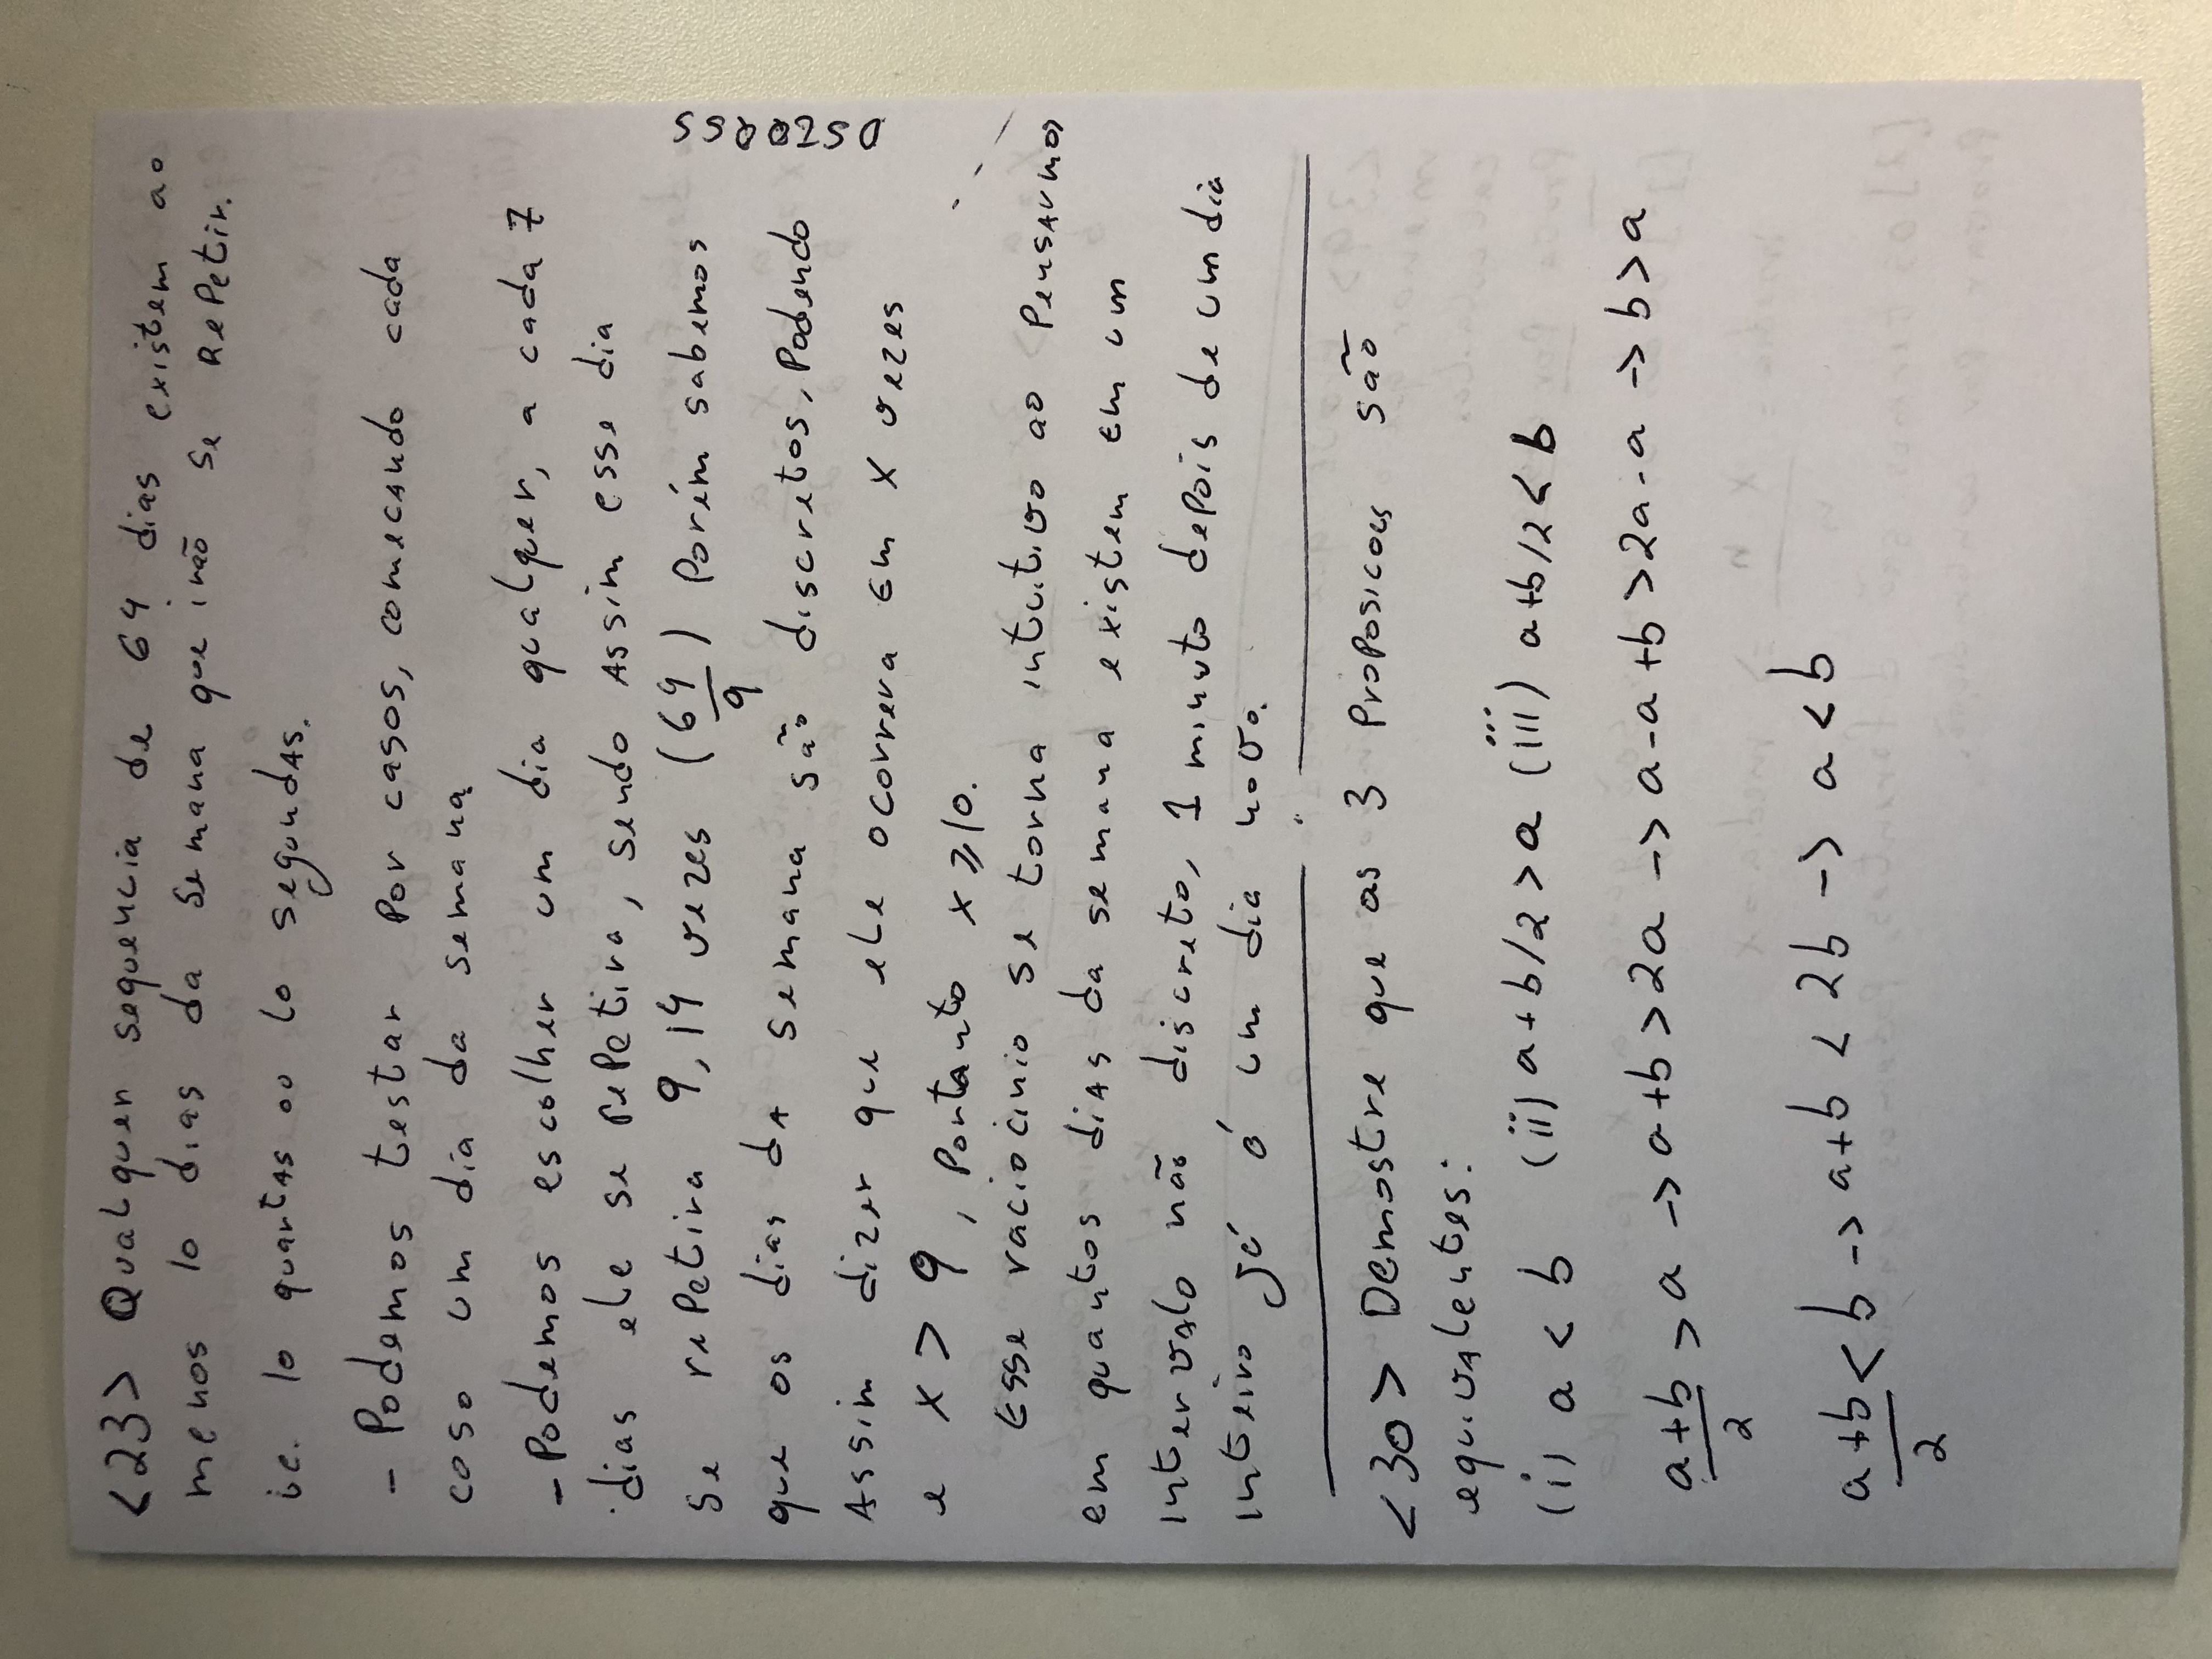 <23> Qualquer sequencia de 64 dias existem ao
menos 10 dias da semana que irão se repetir.
ie. 10 quartas ou 10 segundas.
- Podemos testar por casos, comecando cada
coso um dia da semana
- Podemos escolher um dia qualquer, a cada 7
dias ele se repetira, sendo assim esse dia
se repetira 9,14 vezes (64/9) Porém sabemos
que os dias da semana são discretos, podendo
assim dizer que ele ocorrera em x vezes
e x > 9, portanto x ⩾ 10.
Esse raciocinio se torna intuitivo ao pensarmos
em quantos dias da semana existem em um
intervalo não discreto, 1 minuto depois de um dia
inteiro já é um dia novo.
<30> Demostre que as 3 proposicoes são
equivalentes:
(i) a < b (ii) a+b/2 > a (iii) a+b/2 < b
a+b/2 > a -> a+b > 2a -> a-a+b > 2a-a -> b > a
a+b/2 < b -> a+b < 2b -> a < b